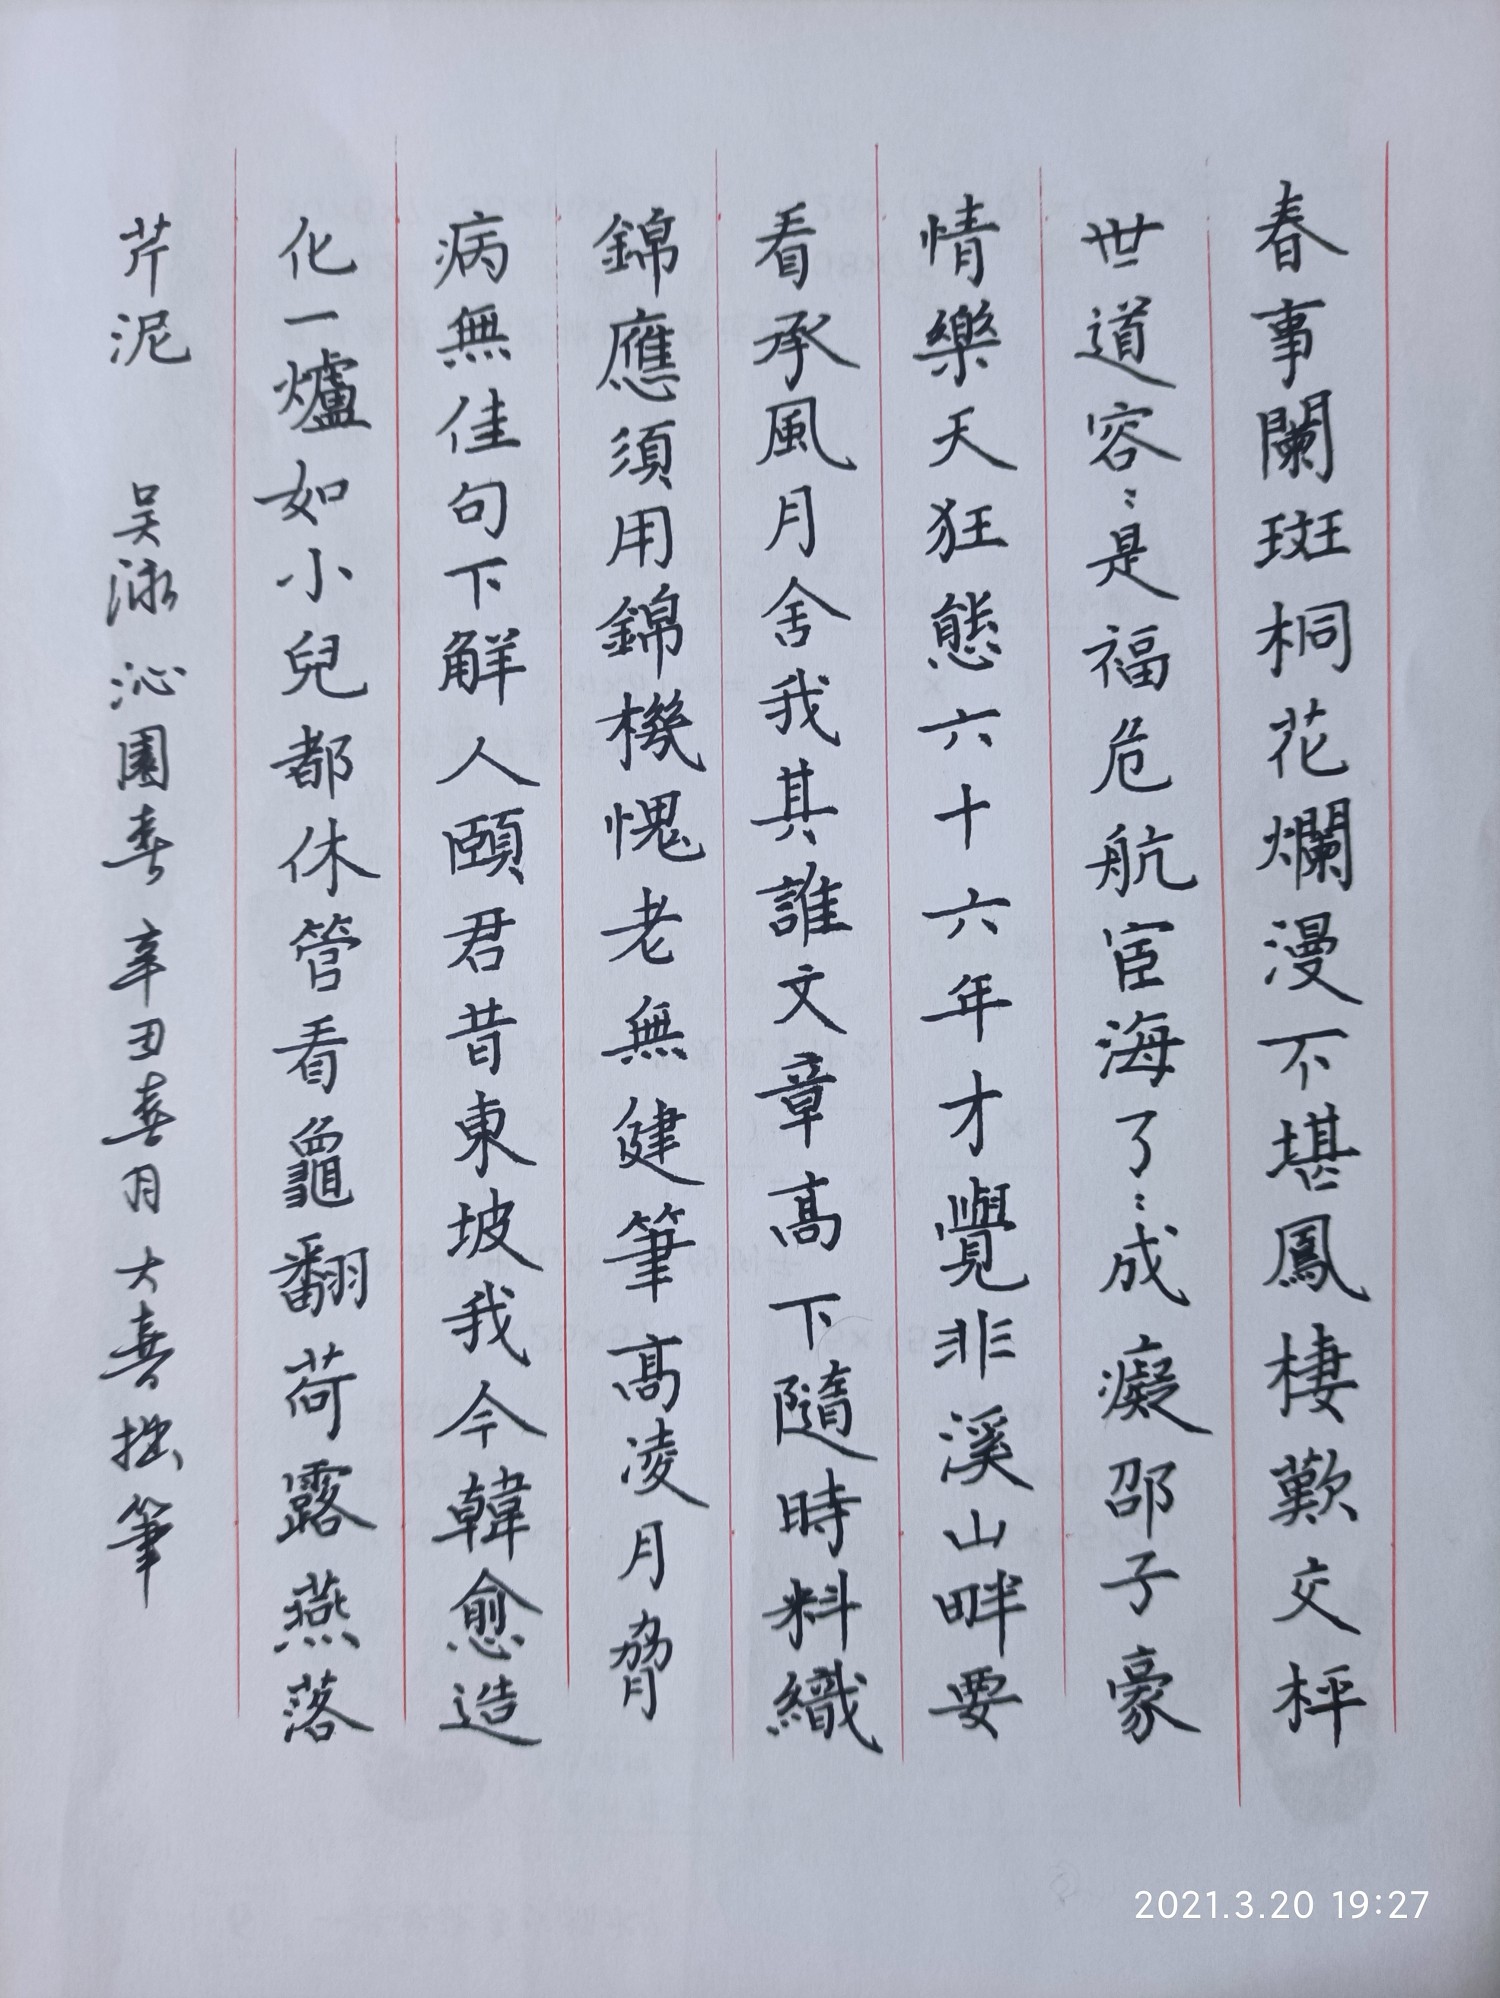 春事闌斑桐花爛漫不堪鳳棲歎交枰
世道容〻是福危航宦海了〻成癡邵子豪
情樂天狂態六十六年才覺非溪山畔要
看承風月舍我其誰文章高下隨時料織
錦應須用錦機愧老無健筆高凌月脅
病無佳句下解人頤君昔東坡我今韓愈造
化一爐如小兒都休管看龜翻荷露燕落
芹泥 吴泳 沁園春 辛丑春月 大春拙筆
2021.3.20 19:27